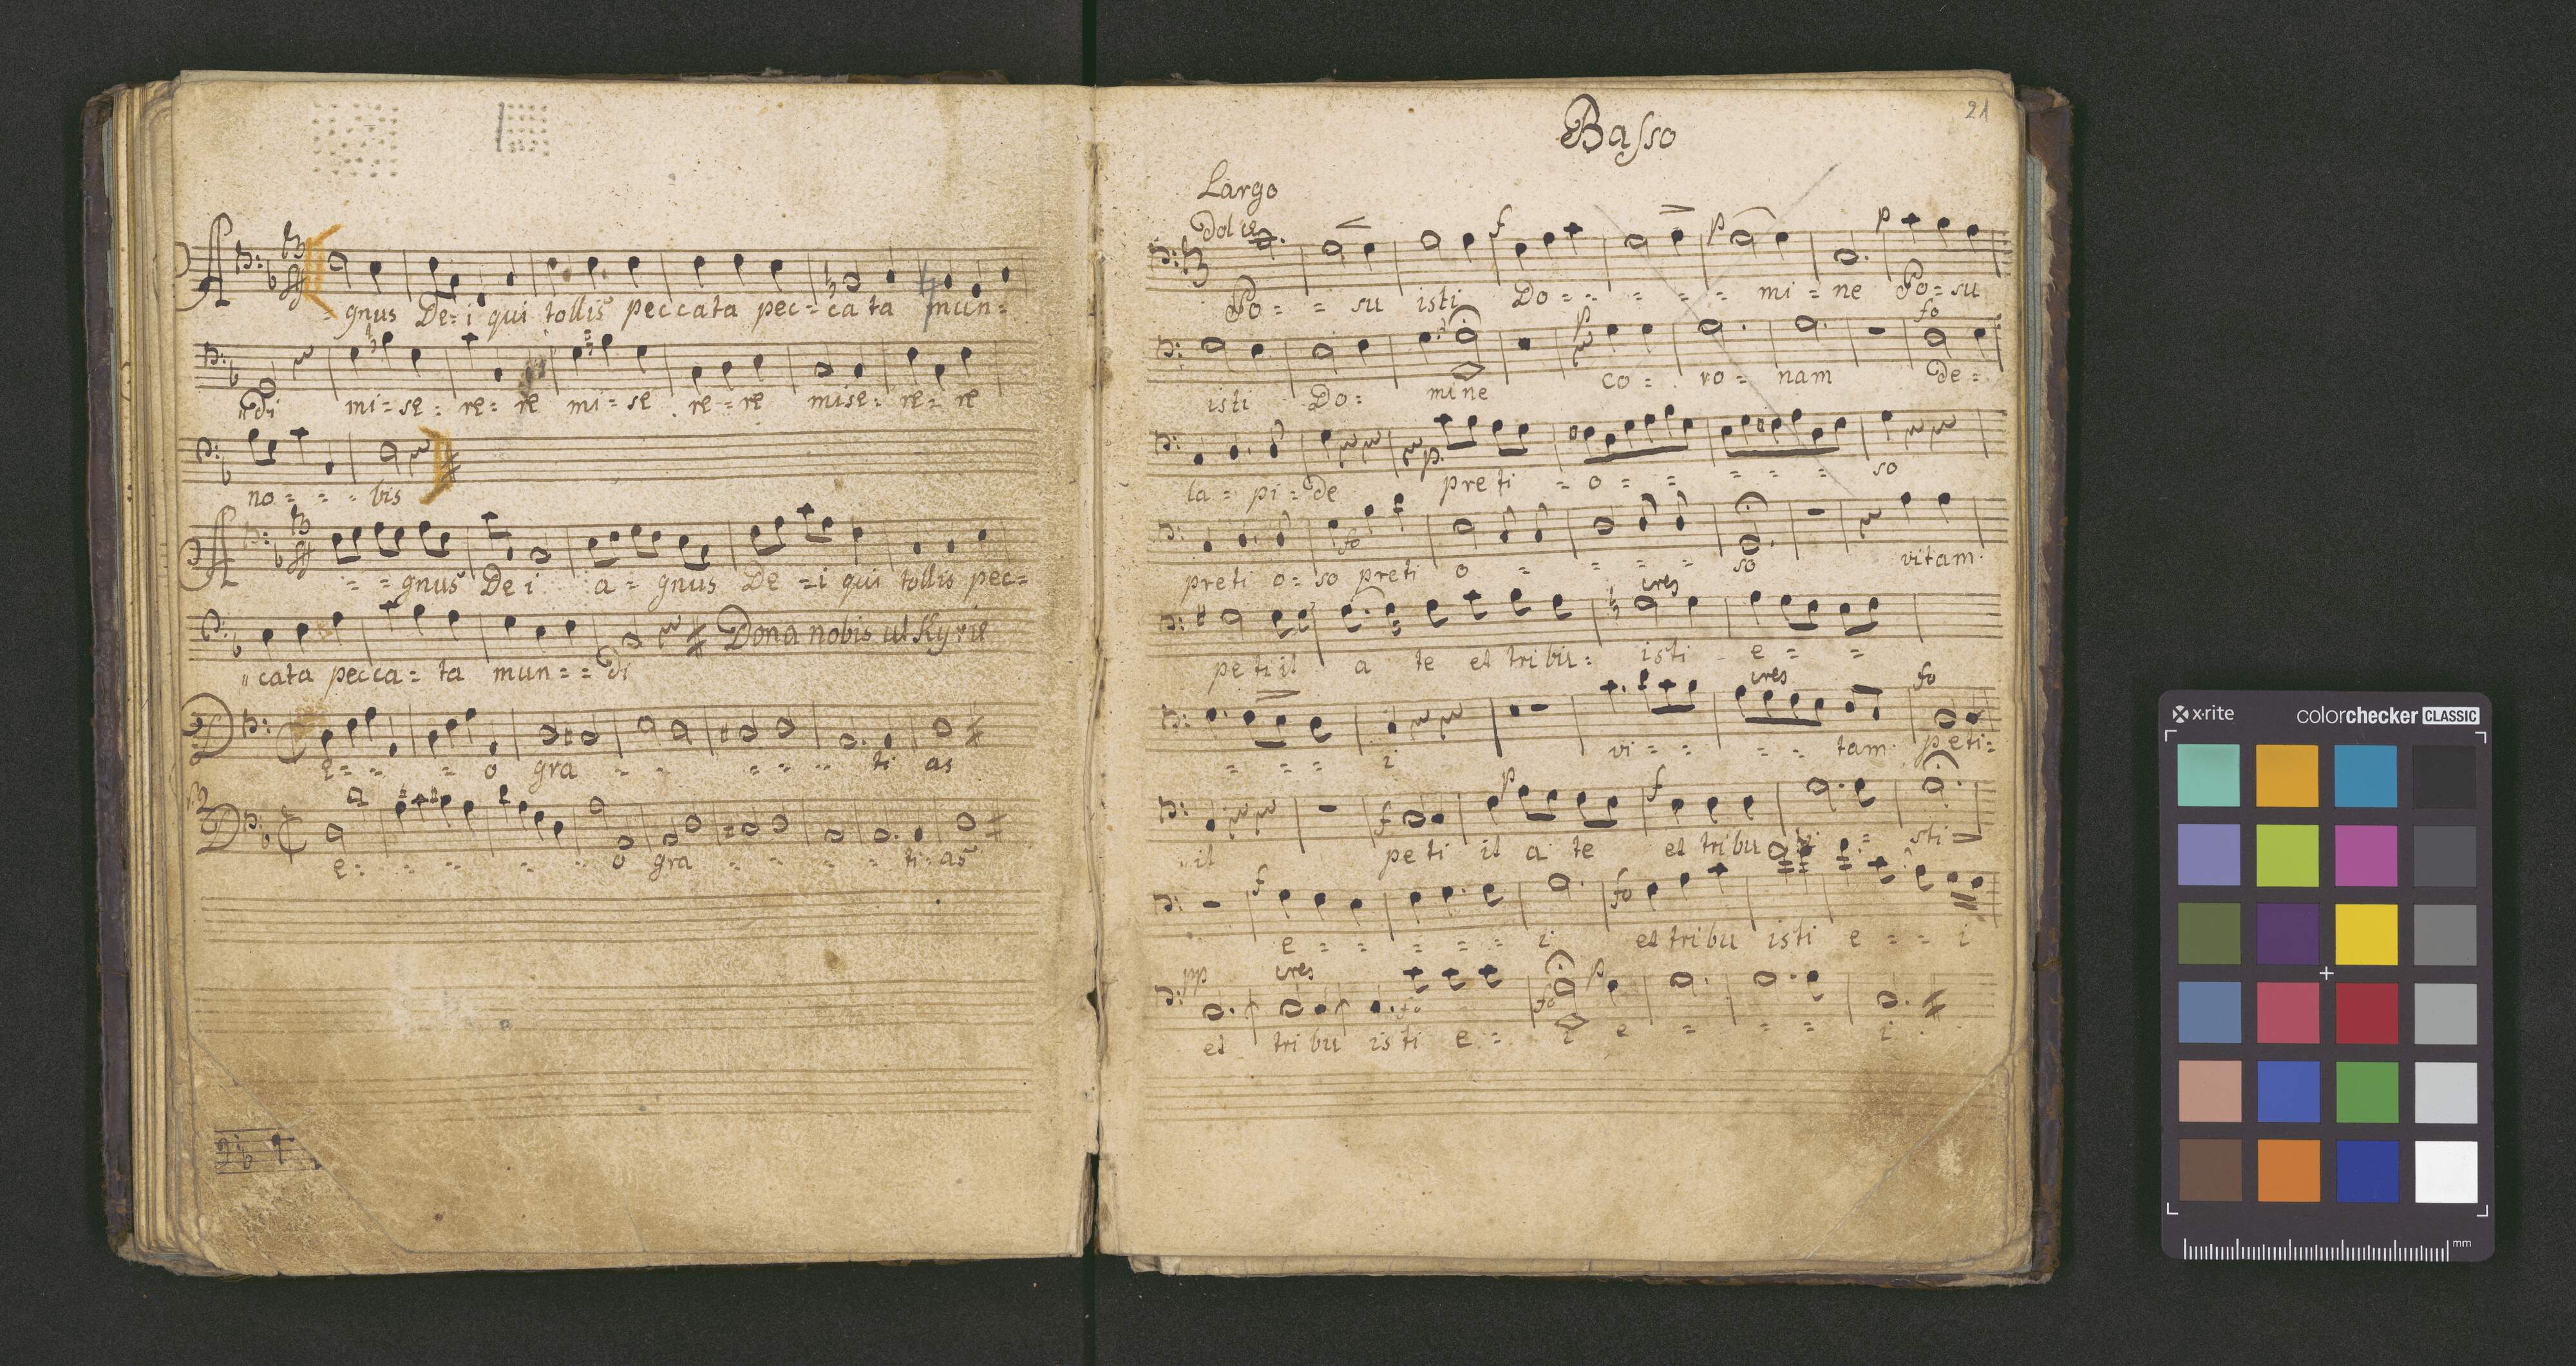 A = gnus De = i qui tollis peccata pec = ca ta mun =
"di mi = se = re = re mi = se re = re mise = re = re
no = = = bis
A = = gnus De i a = gnus De = i qui tollis pec =
"cata pecca = ta mun = = di Dona nobis ut Kyrie
De = = = o gra = = = = = ti as
De = = = = = o gra = = = = ti = as
21
Basso
Largo
Dolce
f p p
Po = = su isti Do = = = = = mi = ne Po = su
p fo
isti Do = mine co = ro = nam de =
p.
la = pi = de preti = o = = = = = so
fo
preti o = so preti o = = = = so vitam
cres
petiit a te et tribu = isti e = =
cres fo
= = = i vi = = = = tam peti =
f p f
"it peti it a te et tribu = sti
f fo
e = = = = = i et tribu isti e = = i
pp cres fo fo p
et tribu isti e = i e = = = i
x-rite colorchecker CLASSIC
mm